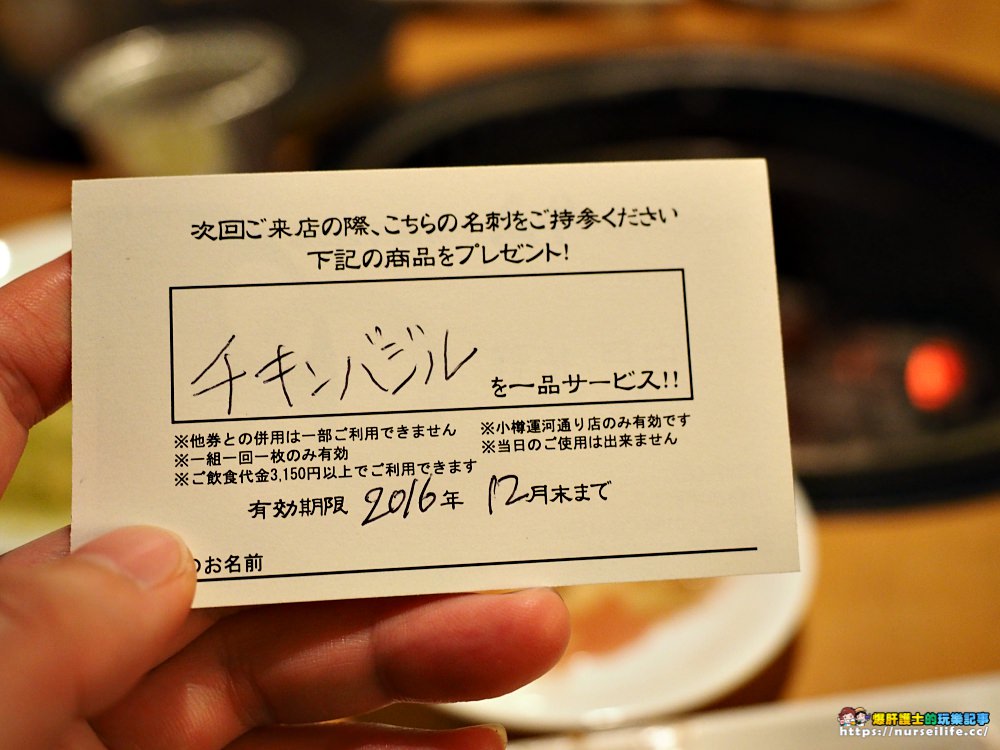 次回ご来店の際、こちらの名刺をご持参ください
下記の商品をプレゼント!
チキンバジル を一品サービス!!
※他券との併用は一部ご利用できません
※一組一回一枚のみ有効
※ご飲食代金3,150円以上でご利用できます
※小樽運河通り店のみ有効です
※当日のご使用は出来ません
有効期限 2016年 12月末まで
のお名前
爆肝護士的玩樂記事
https://nurseilife.cc/